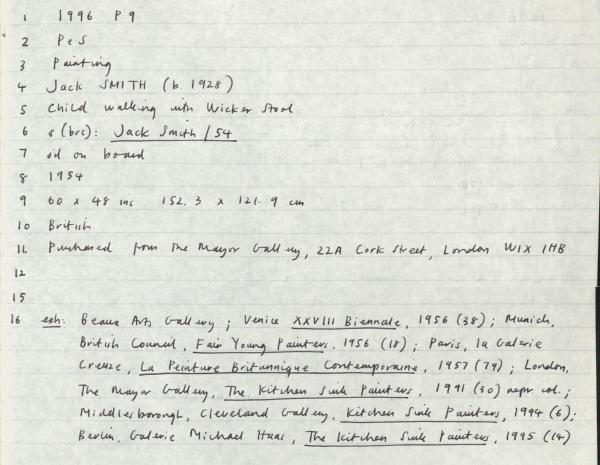 1 1996 P9
2 PeS
3 Painting
4 Jack SMITH (b. 1928)
5 Child walking with Wicker Stool
6 s (brc): Jack Smith / 54
7 oil on board
8 1954
9 60 x 48 ins 152.3 x 121.9 cm
10 British
11. Purchased from the Mayor Gallery, 22A Cork Street, London W1X 1HB
12
15
16 exh: Beaux Arts Gallery; Venice XXVIII Biennale, 1956 (38); Munich,
British Council, Fair Young Painters, 1956 (18); Paris, la Galerie
Creuze, La Peinture Britannique Contemporaine, 1957 (79); London,
The Mayor Gallery, The Kitchen Sink Painters, 1991 (30) repr. col.;
Middlesborough, Cleveland Gallery, Kitchen Sink Painters, 1994 (6);
Berlin, Galerie Michael Haas, The Kitchen Sink Painters, 1995 (14)